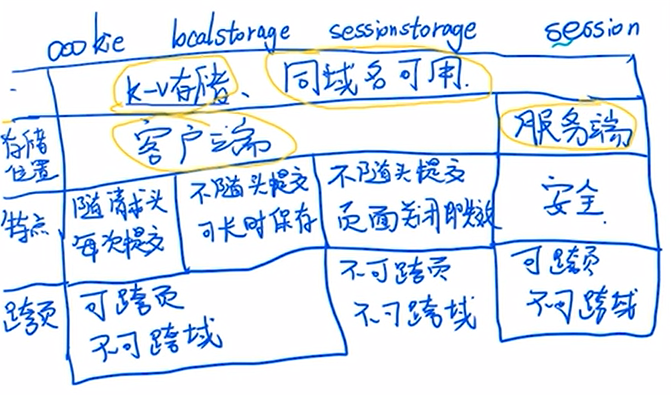 cookie localstorage sessionstorage session
k-v存储、 同域名可用.
存储
位置
客户端
服务端
特点
随请求头
每次提交
不随头提交
可长时保存
不随头提交
页面关闭即失效
安全.
跨页
可跨页
不可跨域
不可跨页
不可跨域
可跨页
不可跨域